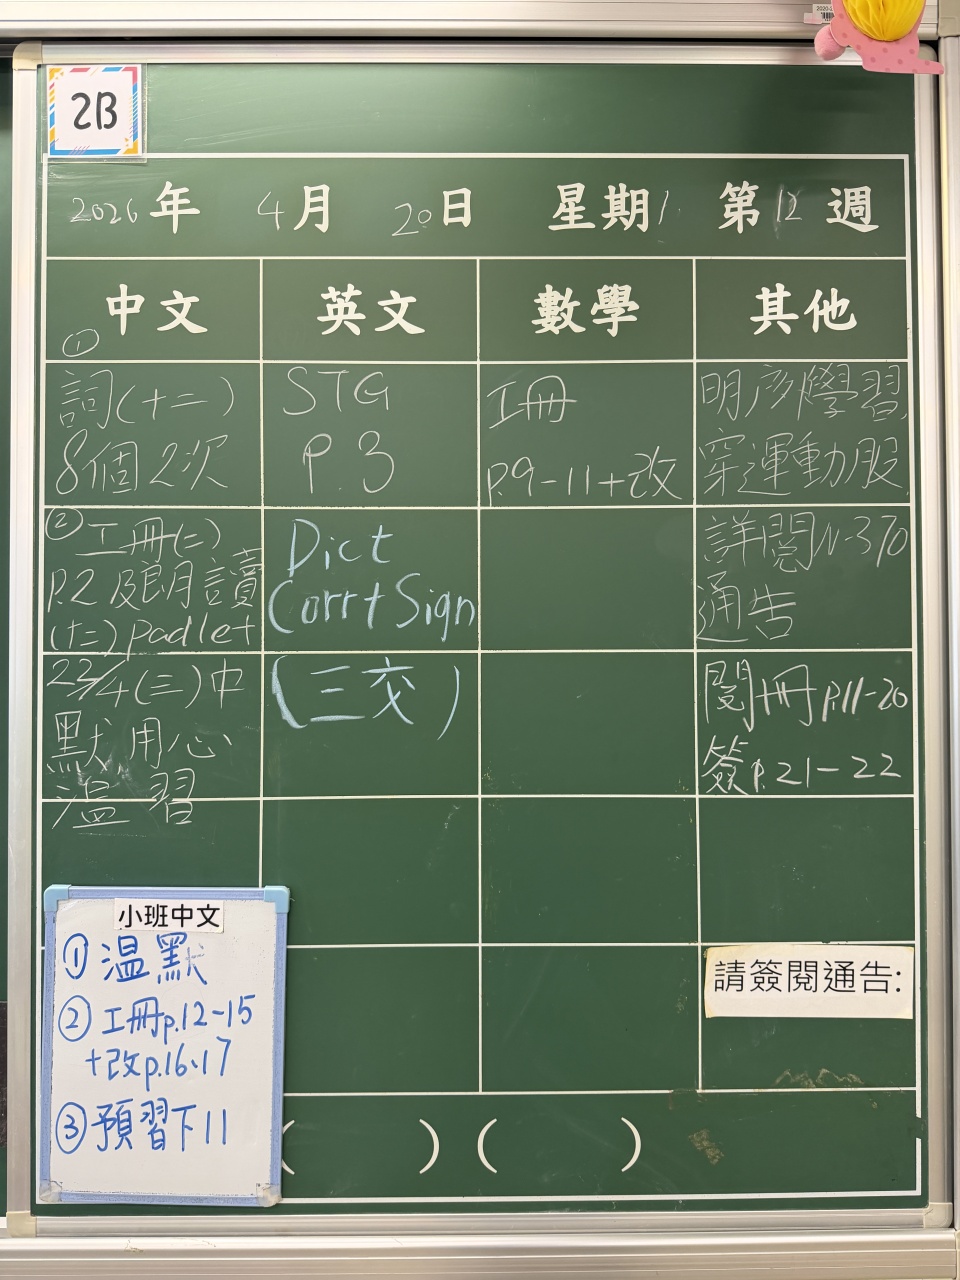 2B
2026年 4月 20日 星期1 第12週
中文 英文 數學 其他
①
詞(十二)
8個2次
STG
P.3
工冊
P.9-11+改
明彥學習
穿運動服
② 工冊(二)
P.2及朗讀
(十二)padlet
Dict
Corr+Sign
詳閱N-370
通告
22/4(三)中
默用心
溫習
(三交)
閱冊p.11-20
簽p.21-22
小班中文
① 溫默
② 工冊p.12-15
+改p.16、17
③ 預習下11
請簽閱通告:
( ) ( )